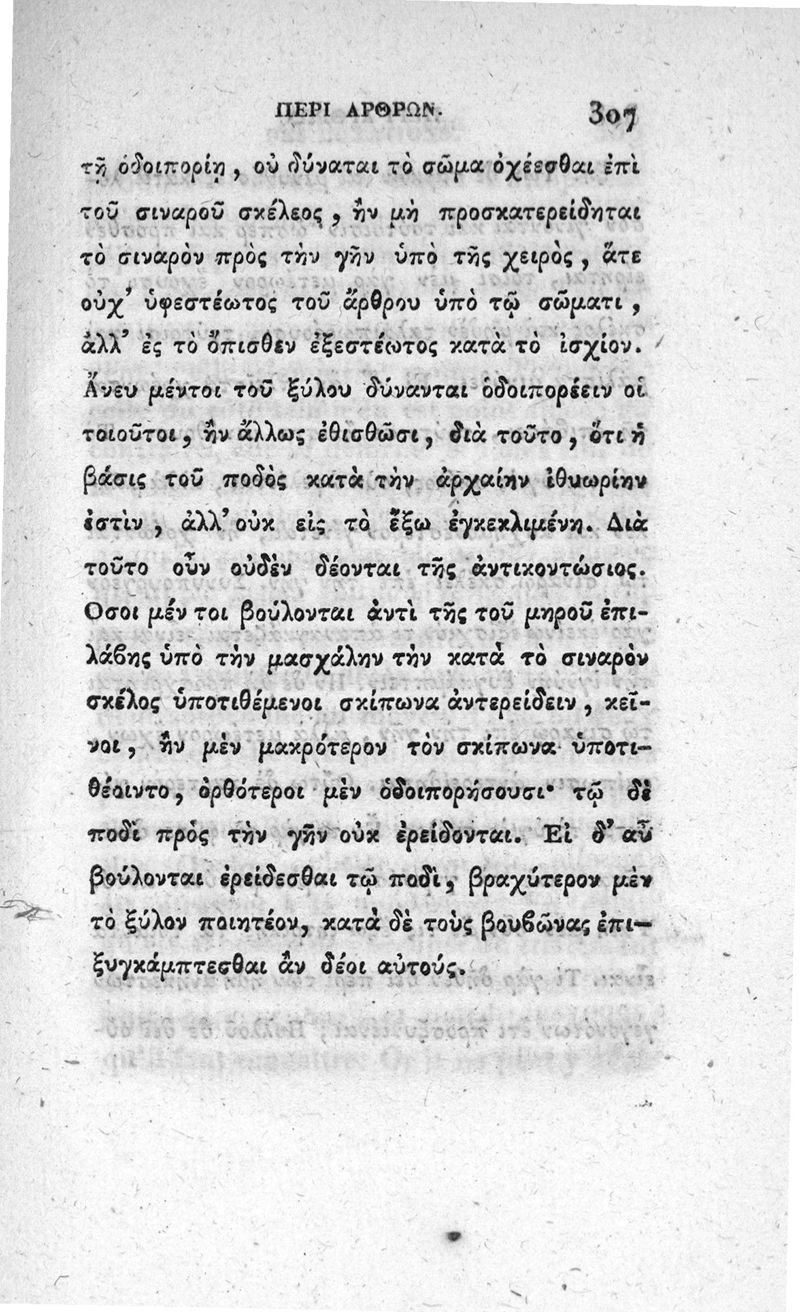 ΠΕΡΙ ΑΡΘΡΩΝ. 307
τῇ ὁδοιπορίῃ, οὐ δύναται τὸ σῶμα ὀχέεσθαι ἐπὶ
τοῦ σιναροῦ σκέλεος, ἢν μὴ προσκατερείδηται
τὸ σιναρὸν πρὸς τὴν γῆν ὑπὸ τῆς χειρὸς, ἅτε
οὐχ᾽ ὑφεστέωτος τοῦ ἄρθρου ὑπὸ τῷ σώματι,
ἀλλ᾽ ἐς τὸ ὄπισθεν ἐξεστέωτος κατὰ τὸ ἰσχίον.
Ἄνευ μέντοι τοῦ ξύλου δύνανται ὁδοιπορέειν οἱ
τοιοῦτοι, ἢν ἄλλως ἐθισθῶσι, διὰ τοῦτο, ὅτι ἡ
βάσις τοῦ ποδὸς κατὰ τὴν ἀρχαίην ἰθυωρίην
ἐστὶν, ἀλλ᾽ οὐκ εἰς τὸ ἔξω ἐγκεκλιμένη. Διὰ
τοῦτο οὖν οὐδὲν δέονται τῆς ἀντικοντώσιος.
Οσοι μέν τοι βούλονται ἀντὶ τῆς τοῦ μηροῦ ἐπι-
λάϐης ὑπὸ τὴν μασχάλην τὴν κατὰ τὸ σιναρὸν
σκέλος ὑποτιθέμενοι σκίπωνα ἀντερείδειν, κεῖ-
νοι, ἢν μὲν μακρότερον τὸν σκίπωνα ὑποτι-
θέοιντο, ὀρθότεροι μὲν ὁδοιπορήσουσι· τῷ δὲ
ποδὶ πρὸς τὴν γῆν οὐκ ἐρείδονται. Εἰ δ᾽ αὖ
βούλονται ἐρείδεσθαι τῷ ποδὶ, βραχύτερον μὲν
τὸ ξύλον ποιητέον, κατὰ δὲ τοὺς βουϐῶνας ἐπι-
ξυγκάμπτεσθαι ἂν δέοι αὐτούς.